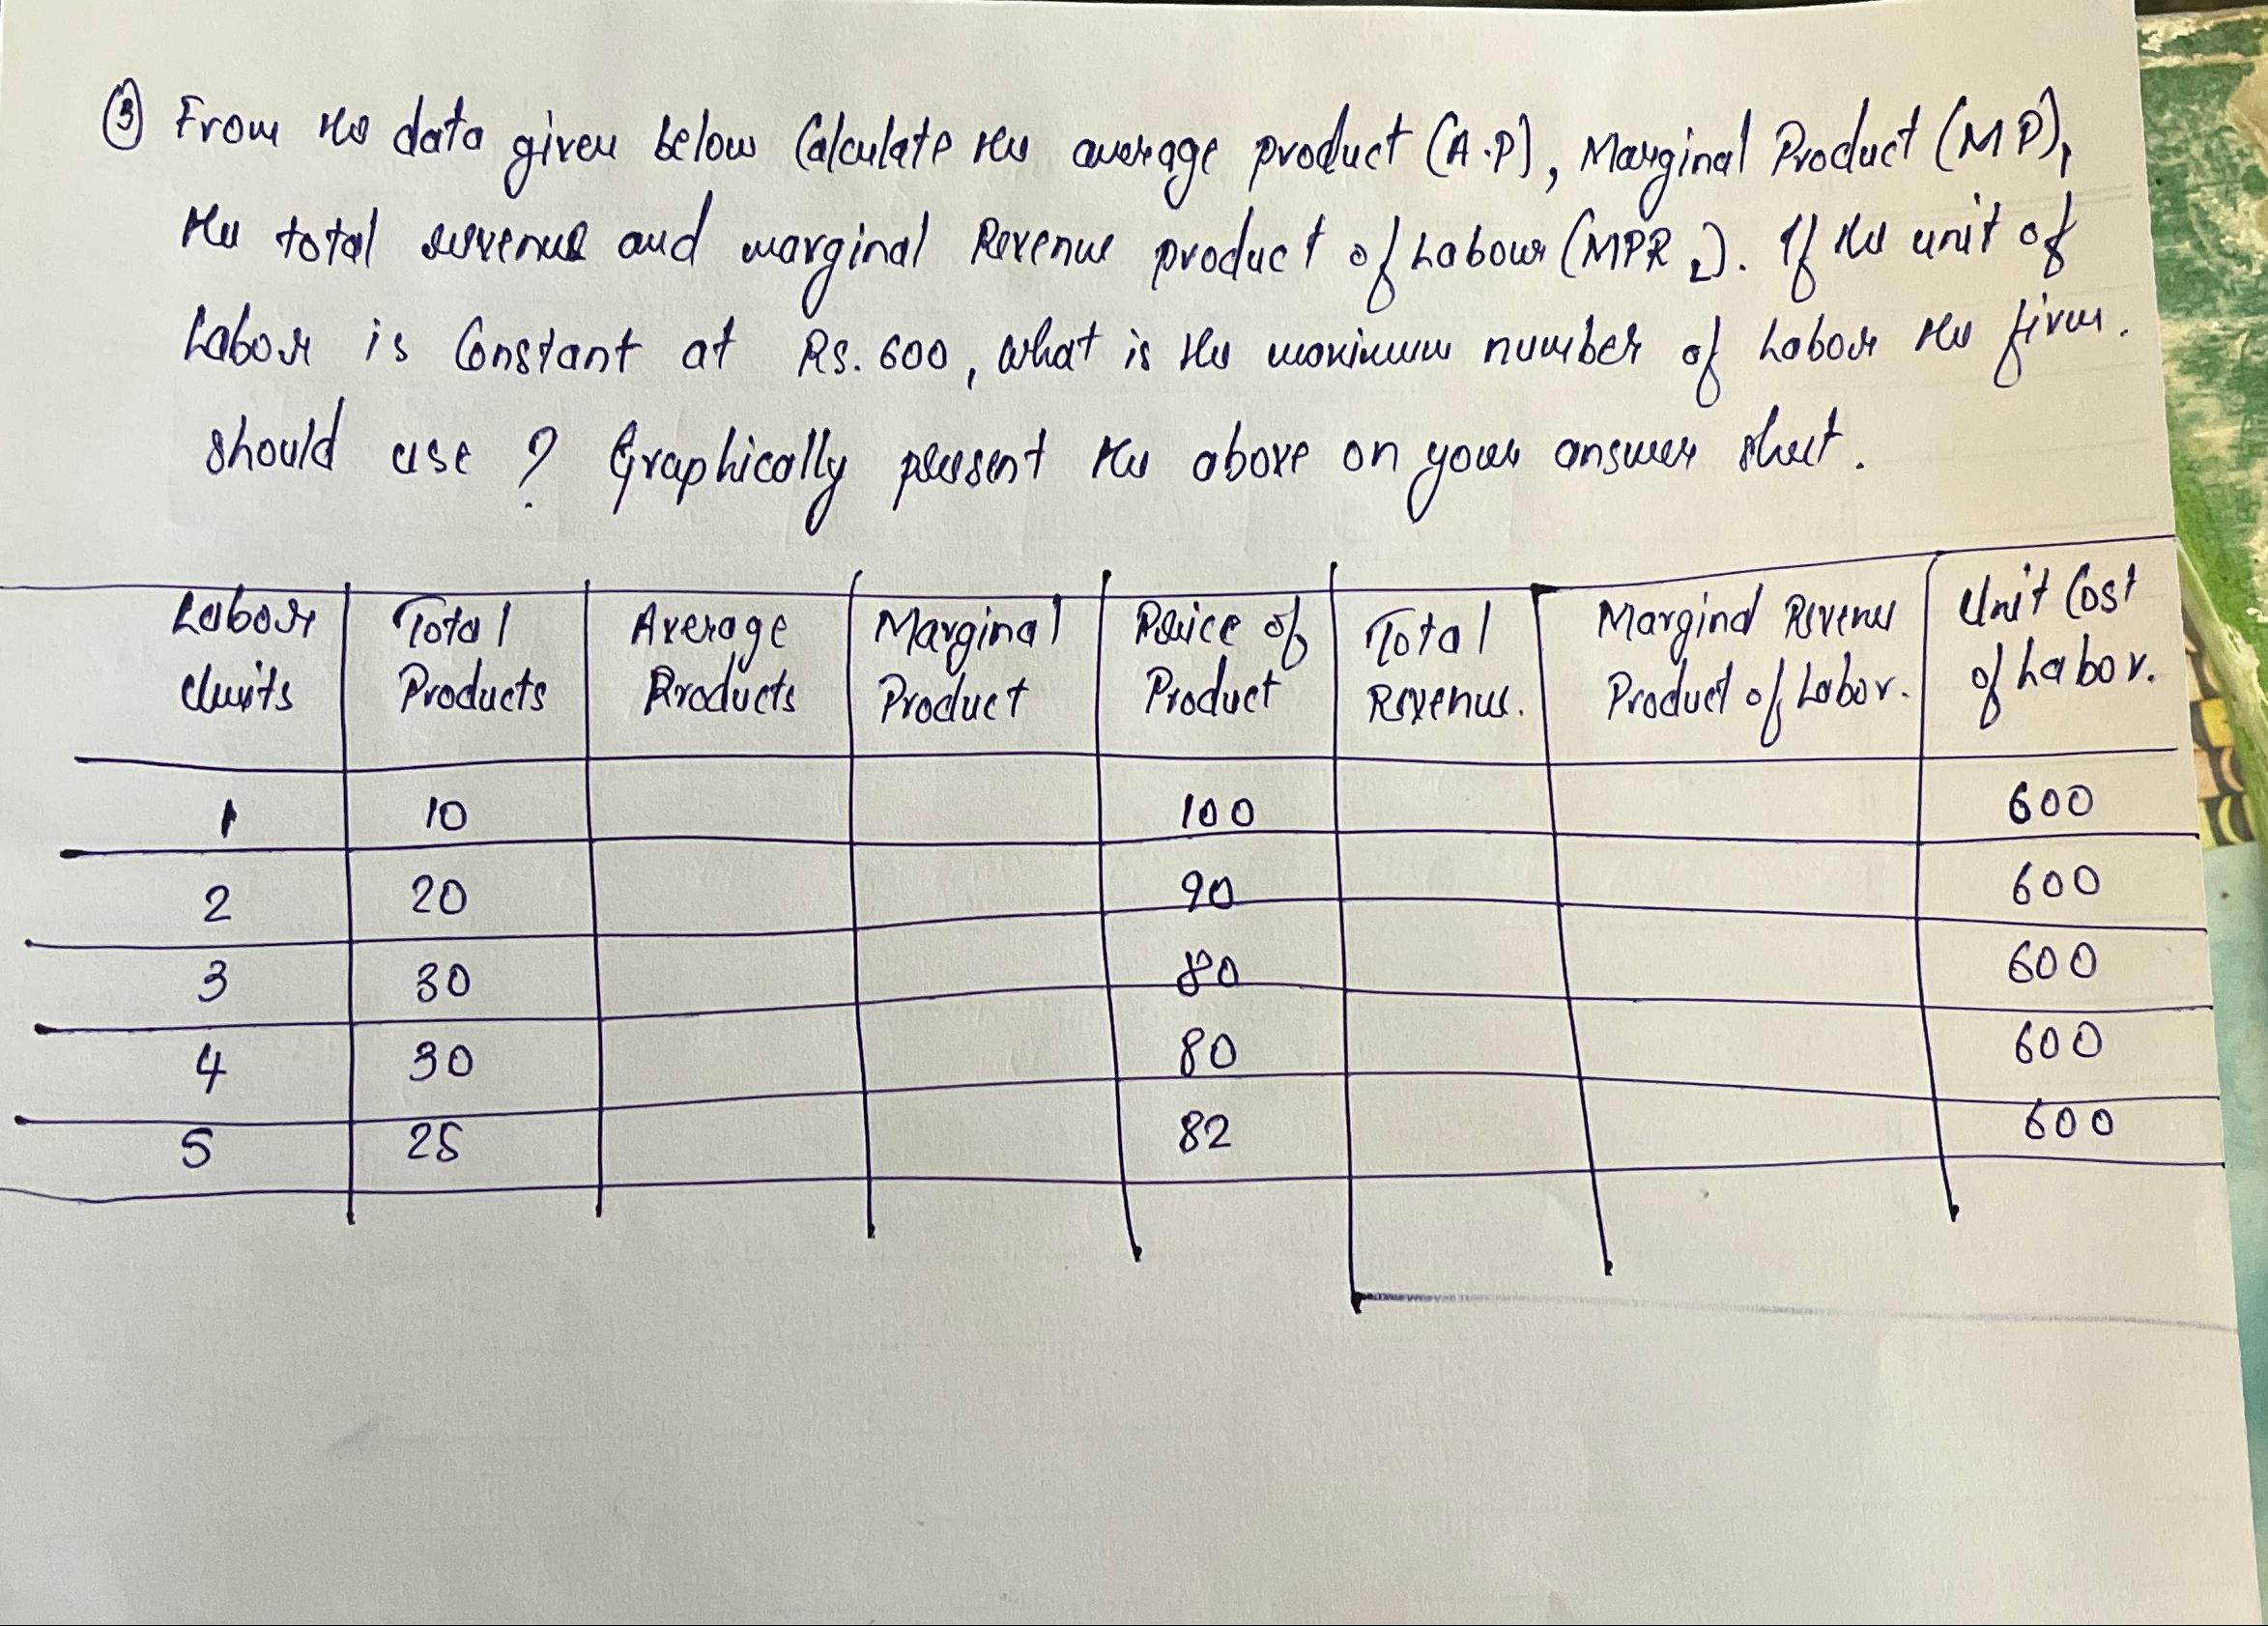 ③ From the data given below Calculate the average product (A.P), Marginal Product (MP),
the total revenue and marginal Revenue product of Labour (MPR L). If the unit of
Labour is Constant at Rs. 600, what is the maximum number of Labour the firm.
should use ? Graphically present the above on your answer sheet.
Labour Units | Total Products | Average Products | Marginal Product | Price of Product | Total Revenue. | Marginal Revenue Product of Labor. | Unit Cost of Labor.
1 | 10 | | | 100 | | | 600
2 | 20 | | | 90 | | | 600
3 | 30 | | | 80 | | | 600
4 | 30 | | | 80 | | | 600
5 | 25 | | | 82 | | | 600